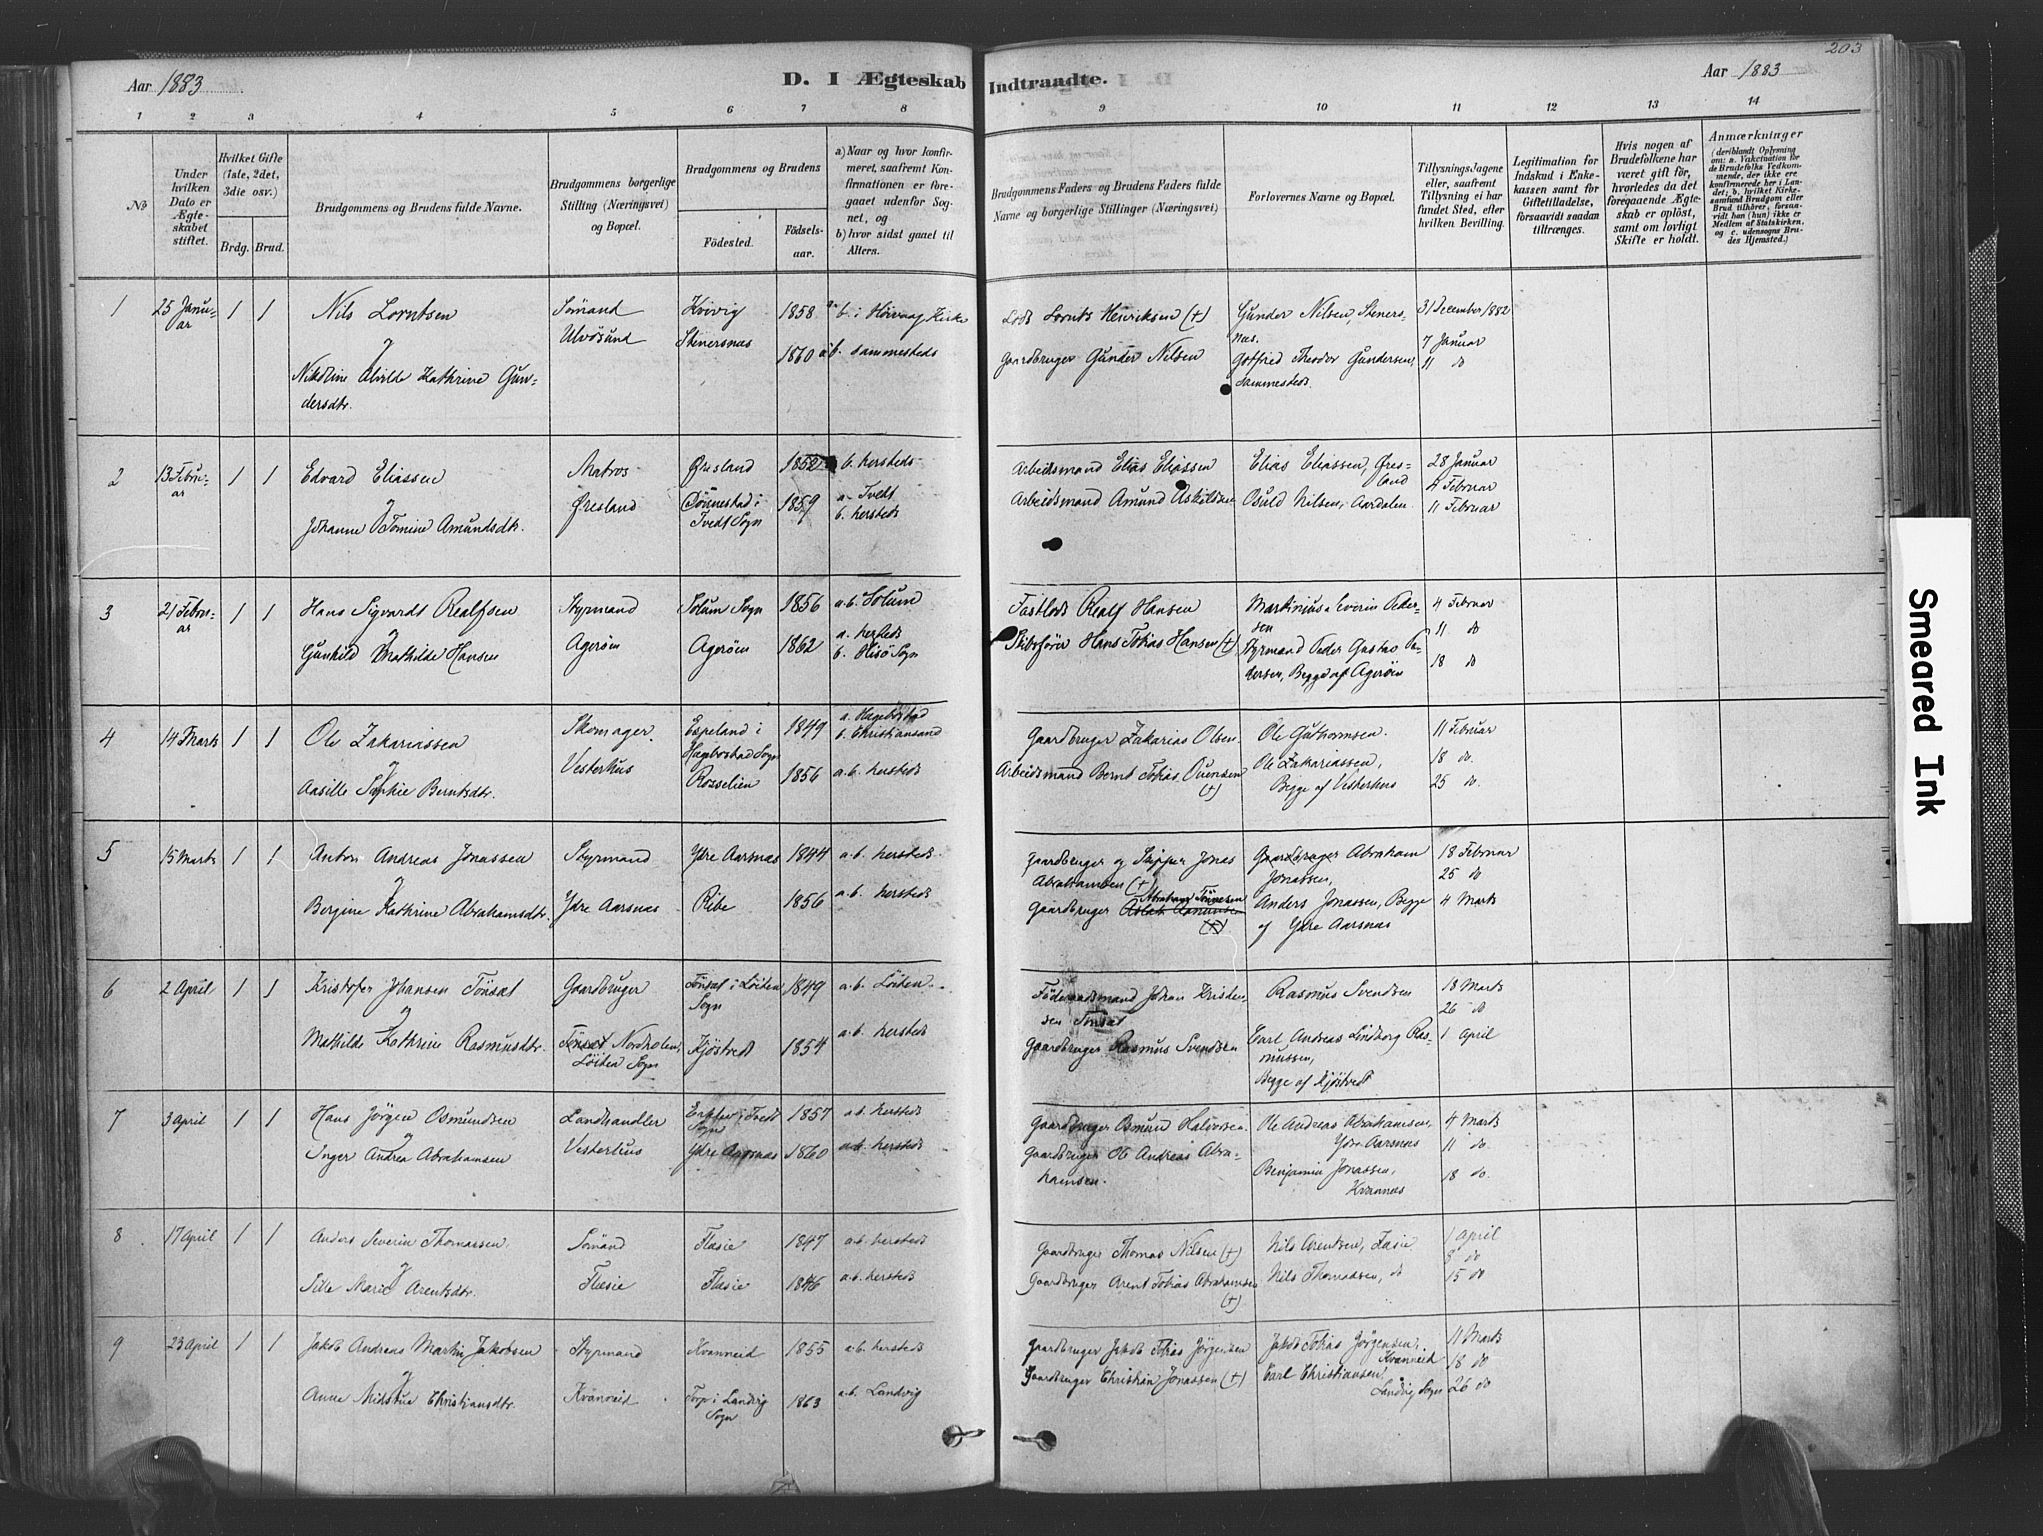 203
Aar 1883
D. I Ægteskab Indtraadte.
Aar 1883
1 2 3 4 5 6 7 8 9 10 11 12 13 14
No
Under hvilken Dato er Ægteskabet stiftet.
Hvilket Gifte (1ste, 2det, 3die osv.)
Brdg. Brud.
Brudgommens og Brudens fulde Navne.
Brudgommens borgerlige Stilling (Næringsvei) og Bopæl.
Brudgommens og Brudens
Födested.
Födselsaar.
a) Naar og hvor konfirmeret, saafremt Konfirmationen er foregaaet udenfor Sognet, og
b) hvor sidst gaaet til Alters.
Brudgommens Faders og Brudens Faders fulde Navne og borgerlige Stillinger (Næringsvei)
Forlovernes Navne og Bopæl.
Tillysningsdagene eller, saafremt Tillysning ei har fundet Sted, efter hvilken Bevilling.
Legitimation for Indskud i Enkekassen samt for Giftetilladelse, forsaavidt saadan tiltrænges.
Hvis nogen af Brudefolkene har været gift för, hvorledes da det foregaaende Ægteskab er oplöst, samt om lovligt Skifte er holdt.
Anmærkninger
(deriblandt Oplysning om: a. Vakcination for de Brudefolks Vedkommende, der ikke ere konfirmerede her i Landet; b. hvilket Kirkesamfund Brudgom eller Brud tilhörer, forsaavidt han (hun) ikke er Medlem af Statskirken, og c. udensogns Brudes Hjemsted.)
1 25 Januar 1 1
Nils Lorntsen
Nikoline Alvilde Kathrine Gundersdtr.
Sömand Ulvösund
Kvivig 1858 b. i Hövaag Kirke
Stenersnas 1860 a.b. sammesteds
Lods Lornts Henriksen (+)
Gaardbruger Gunder Nilsen
Gunder Nilsen, Stenersnas.
Gotfried Theodor Gundersen, sammesteds.
31 December 1882
7 Januar
11 do
2 13 Februar 1 1
Edvard Eliassen
Johanne Tomine Amundsdtr.
Matros Öresland
Öresland 1852 b. hersteds
Tönnestad i Tvedt Sogn 1859 a. Tvedt b. hersteds
Arbeidsmand Elias Eliassen
Arbeidsmand Amund Askildsen
Elias Eliassen, Öresland
Osuld Nilsen, Aardalen
28 Januar
4 Februar
11 Februar
3 21 Februar 1 1
Hans Sigvardt Realfsen
Gunhild Mathilde Hansen
Styrmand Ageröen
Solum Sogn 1856 a.b. Solum
Ageröen 1862 a. hersteds b. Olisö Sogn
Fastlods Realf Hansen
Skibsförer Hans Tobias Hansen (+)
Martinius Severin Pedersen
Styrmand Peder Gustav Pedersen, Begge af Ageröen
4 Februar
11 do
18 do
4 14 Marts 1 1
Ole Zakariassen
Aasille Sophie Berntsdtr.
Skomager Vesterhus
Espeland i Hagbostad Sogn 1849 a. Hagebostad b. Christiansand
Rosselien 1856 a.b. hersteds
Gaardbruger Zakarias Olsen
Arbeidsmand Bernt Tobias Ouensen (+)
Ole Guthormsen.
Ole Zakariassen, Begge af Vesterhus
11 Februar
18 do.
25 do.
5 15 Marts 1 1
Anton Andreas Jonassen
Bergine Kathrine Abrahamsdtr.
Styrmand Ydre Aarsnas
Ydre Aarsnas 1844 a.b. hersteds.
Ribe 1856 a.b. hersteds
Gaardbruger og Skipper Jonas Abrahamsen (+)
Gaardbruger Abraham Tönnesen (+)
Gaardbruger Abraham Jonassen,
Anders Jonassen, Begge af Ydre Aarsnas
18 Februar
25 do
4 Marts
6 2 April 1 1
Kristofer Johansen Tönsæt
Mathilde Kathrine Rasmusdtr.
Gaardbruger
Nordholen, Löiten Sogn
Tönsæt i Löiten Sogn 1849 a.b. Löiten
Kjöstvedt 1854 a.b. hersteds
Föderaadsmand Johan Kristensen Tönsæt
Gaardbruger Rasmus Svendsen
Rasmus Svendsen
Carl Andreas Lindborg Rasmussen,
Begge af Kjöstvedt
18 Marts
26 do
1 April
7 3 April 1 1
Hans Jörgen Osmundsen
Inger Andrea Abrahamsen
Landhandler Vesterhus
i Tvedt Sogn 1857 a.b. hersteds
Ydre Aarsnas 1860 a.b. hersteds
Gaardbruger Osmund Halvorsen
Gaardbruger Ole Andreas Abrahamsen.
Ole Andreas Abrahamsen, Ydre Aarsnas
Benjamin Jonassen, Kvannes
4 Marts
11 do.
18 do.
8 17 April 1 1
Anders Severin Thomassen
Sille Marie Arentsdtr.
Sömand Flasie
Flasie 1847 a.b. hersteds
Flasie 1846 a.b. hersteds
Gaardbruger Thomas Nilsen (+)
Gaardbruger Arent Tobias Abrahamsen (+)
Nils Arentsen, Flasie
Nils Thomassen, do
1 April
8 do
15 do
9 23 April 1 1
Jakob Andreas Martin Jakobsen
Anne Christiansdtr.
Styrmand Kvanneid
Kvanneid 1855 a.b. hersteds
Torp i Landvig Sogn 1863 a.b. Landvig
Gaardbruger Jakob Tobias Jörgensen
Gaardbruger Christian Jonassen (+)
Jakob Tobias Jörgensen, Kvanneid
Carl Christiansen, Landvig Sogn
11 Marts
18 do
26 do
Smeared Ink